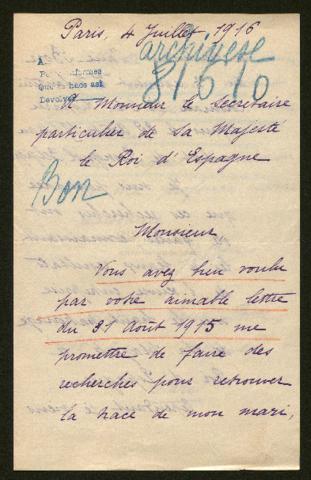 Paris, 4 Juillet 1916
archivese
8/6/0
A
Devolver
Bon
A Monsieur le Secrétaire
particulier de Sa Majesté
le Roi d'Espagne
Monsieur
Vous avez bien voulu
par votre aimable lettre
du 31 Août 1915 me
promettre de faire des
recherches pour retrouver
la trace de mon mari,